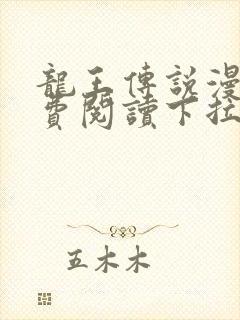 龍王傳說漫
費閱讀下拉
五木木